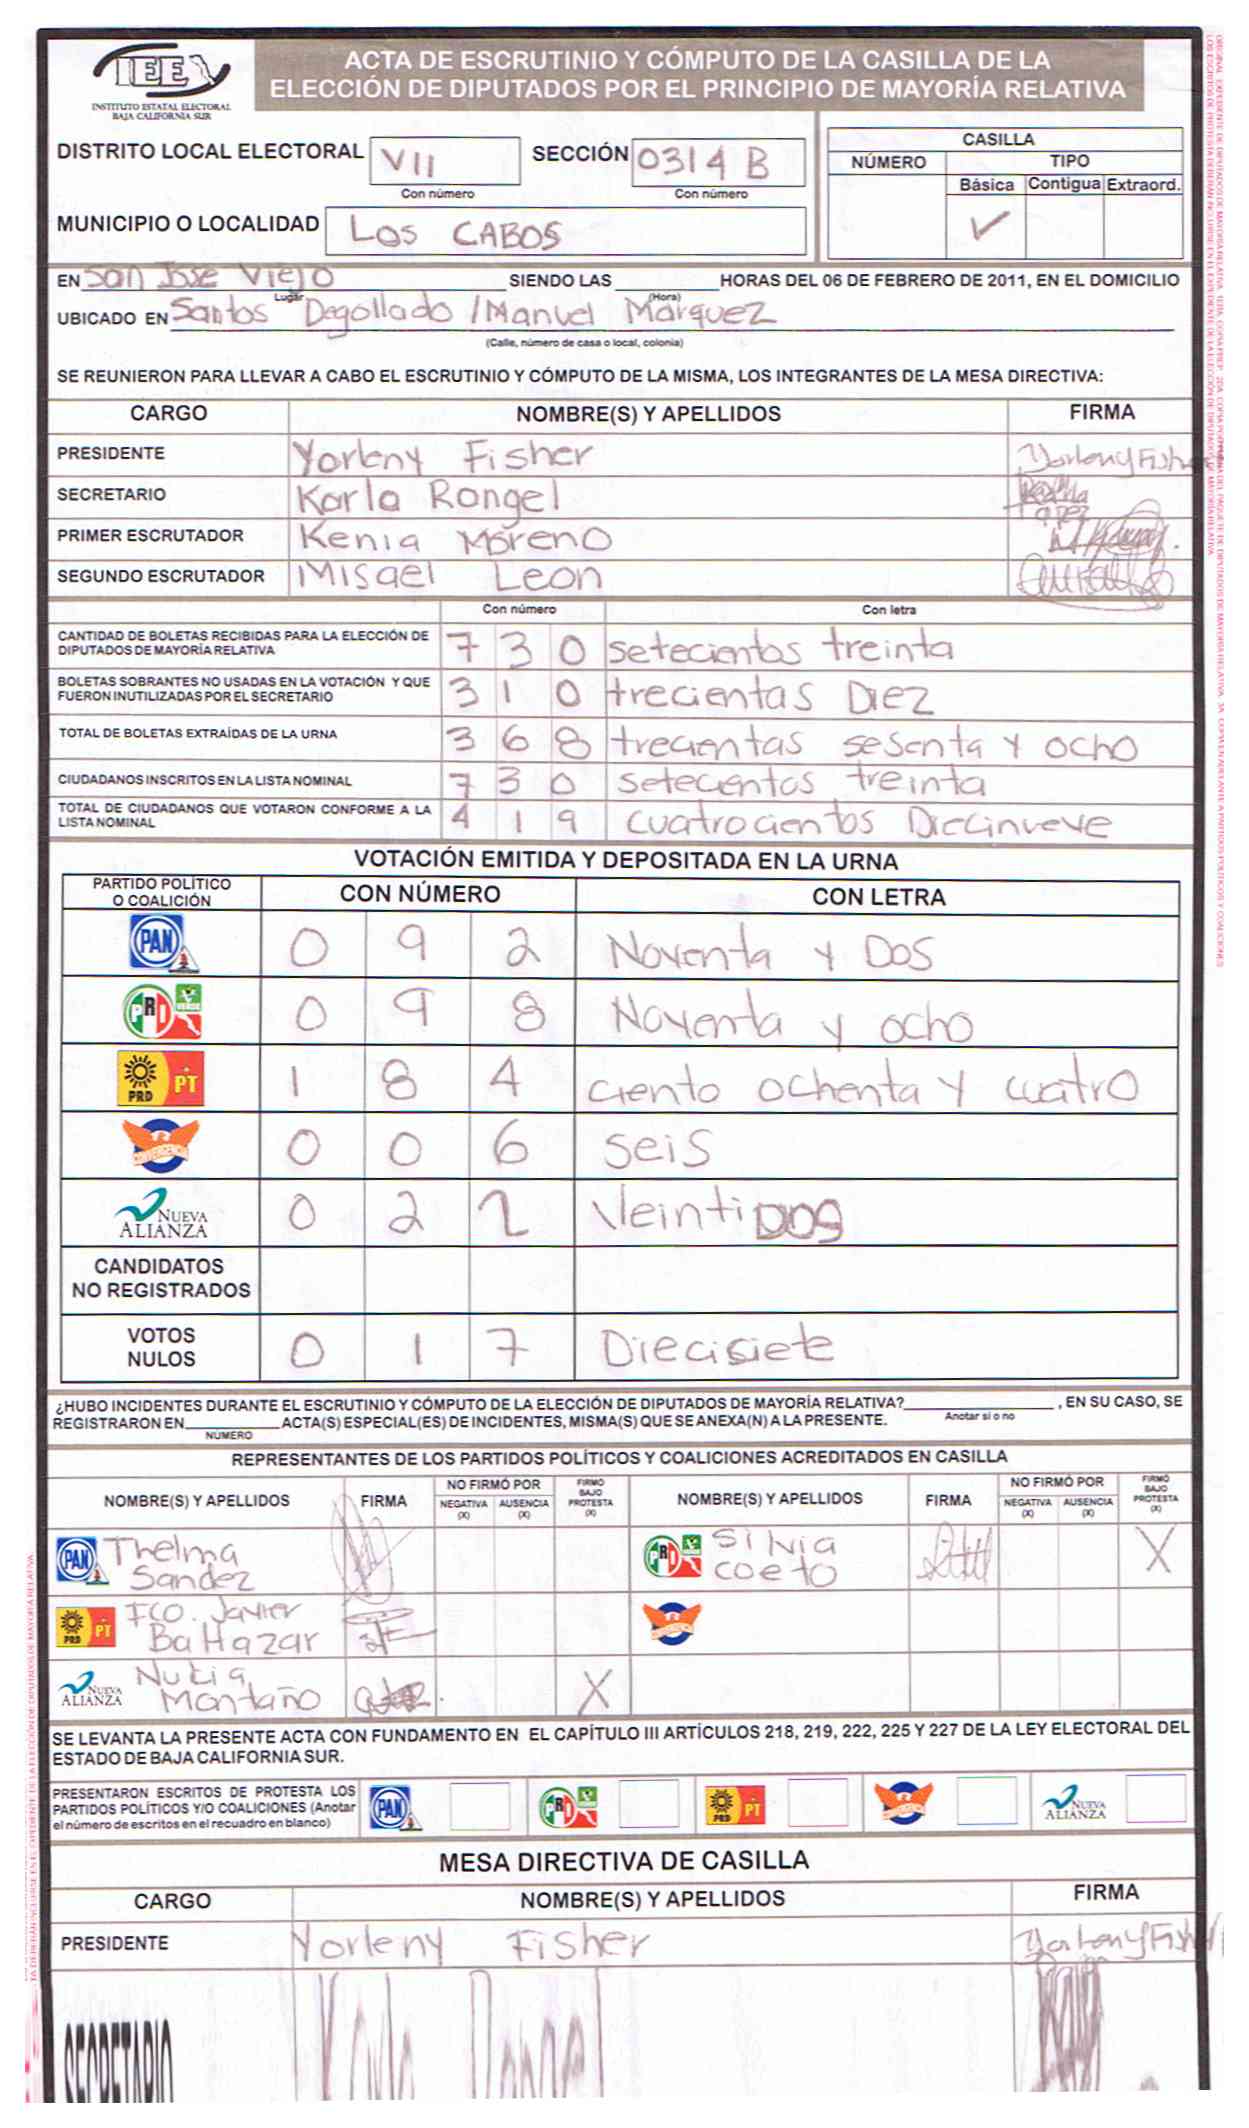 IEE
INSTITUTO ESTATAL ELECTORAL
BAJA CALIFORNIA SUR
ACTA DE ESCRUTINIO Y CÓMPUTO DE LA CASILLA DE LA
ELECCIÓN DE DIPUTADOS POR EL PRINCIPIO DE MAYORÍA RELATIVA
DISTRITO LOCAL ELECTORAL VII SECCIÓN 0314 B
Con número Con número
MUNICIPIO O LOCALIDAD Los CABOS
CASILLA
NÚMERO TIPO
Básica Contigua Extraord.
✓
EN San Jose Viejo SIENDO LAS HORAS DEL 06 DE FEBRERO DE 2011, EN EL DOMICILIO
Lugar (Hora)
UBICADO EN Santos Degollado / Manuel Marquez
(Calle, número de casa o local, colonia)
SE REUNIERON PARA LLEVAR A CABO EL ESCRUTINIO Y CÓMPUTO DE LA MISMA, LOS INTEGRANTES DE LA MESA DIRECTIVA:
CARGO NOMBRE(S) Y APELLIDOS FIRMA
PRESIDENTE Yorleny Fisher Yorleny Fisher
SECRETARIO Karla Rangel
PRIMER ESCRUTADOR Kenia Moreno
SEGUNDO ESCRUTADOR Misael Leon
Con número Con letra
CANTIDAD DE BOLETAS RECIBIDAS PARA LA ELECCIÓN DE
DIPUTADOS DE MAYORÍA RELATIVA 7 3 0 setecientos treinta
BOLETAS SOBRANTES NO USADAS EN LA VOTACIÓN Y QUE
FUERON INUTILIZADAS POR EL SECRETARIO 3 1 0 trecientas Diez
TOTAL DE BOLETAS EXTRAÍDAS DE LA URNA 3 6 8 trecientas sesenta y ocho
CIUDADANOS INSCRITOS EN LA LISTA NOMINAL 7 3 0 setecentos treinta
TOTAL DE CIUDADANOS QUE VOTARON CONFORME A LA
LISTA NOMINAL 4 1 9 cuatrocientos Diecinueve
VOTACIÓN EMITIDA Y DEPOSITADA EN LA URNA
PARTIDO POLÍTICO
O COALICIÓN CON NÚMERO CON LETRA
PAN 0 9 2 Noventa y Dos
PRI VERDE 0 9 8 Noventa y ocho
PRD PT 1 8 4 ciento ochenta y cuatro
CONVERGENCIA 0 0 6 seis
NUEVA ALIANZA 0 2 2 VeintiDOS
CANDIDATOS
NO REGISTRADOS
VOTOS
NULOS 0 1 7 Diecisiete
¿HUBO INCIDENTES DURANTE EL ESCRUTINIO Y CÓMPUTO DE LA ELECCIÓN DE DIPUTADOS DE MAYORÍA RELATIVA? , EN SU CASO, SE
Anotar si o no
REGISTRARON EN ACTA(S) ESPECIAL(ES) DE INCIDENTES, MISMA(S) QUE SE ANEXA(N) A LA PRESENTE.
NÚMERO
REPRESENTANTES DE LOS PARTIDOS POLÍTICOS Y COALICIONES ACREDITADOS EN CASILLA
NOMBRE(S) Y APELLIDOS FIRMA NO FIRMÓ POR NEGATIVA (X) AUSENCIA (X) FIRMÓ BAJO PROTESTA (X) NOMBRE(S) Y APELLIDOS FIRMA NO FIRMÓ POR NEGATIVA (X) AUSENCIA (X) FIRMÓ BAJO PROTESTA (X)
PAN Thelma Sandez PRI Silvia Coeto X
PRD PT FCO. Javier Baltazar
NUEVA ALIANZA Montaño X
SE LEVANTA LA PRESENTE ACTA CON FUNDAMENTO EN EL CAPÍTULO III ARTÍCULOS 218, 219, 222, 225 Y 227 DE LA LEY ELECTORAL DEL
ESTADO DE BAJA CALIFORNIA SUR.
PRESENTARON ESCRITOS DE PROTESTA LOS
PARTIDOS POLÍTICOS Y/O COALICIONES (Anotar
el número de escritos en el recuadro en blanco) PAN PRI PRD PT NUEVA ALIANZA
MESA DIRECTIVA DE CASILLA
CARGO NOMBRE(S) Y APELLIDOS FIRMA
PRESIDENTE Yorleny Fisher Yorleny Fisher
SECRETARIO Karla Rangel